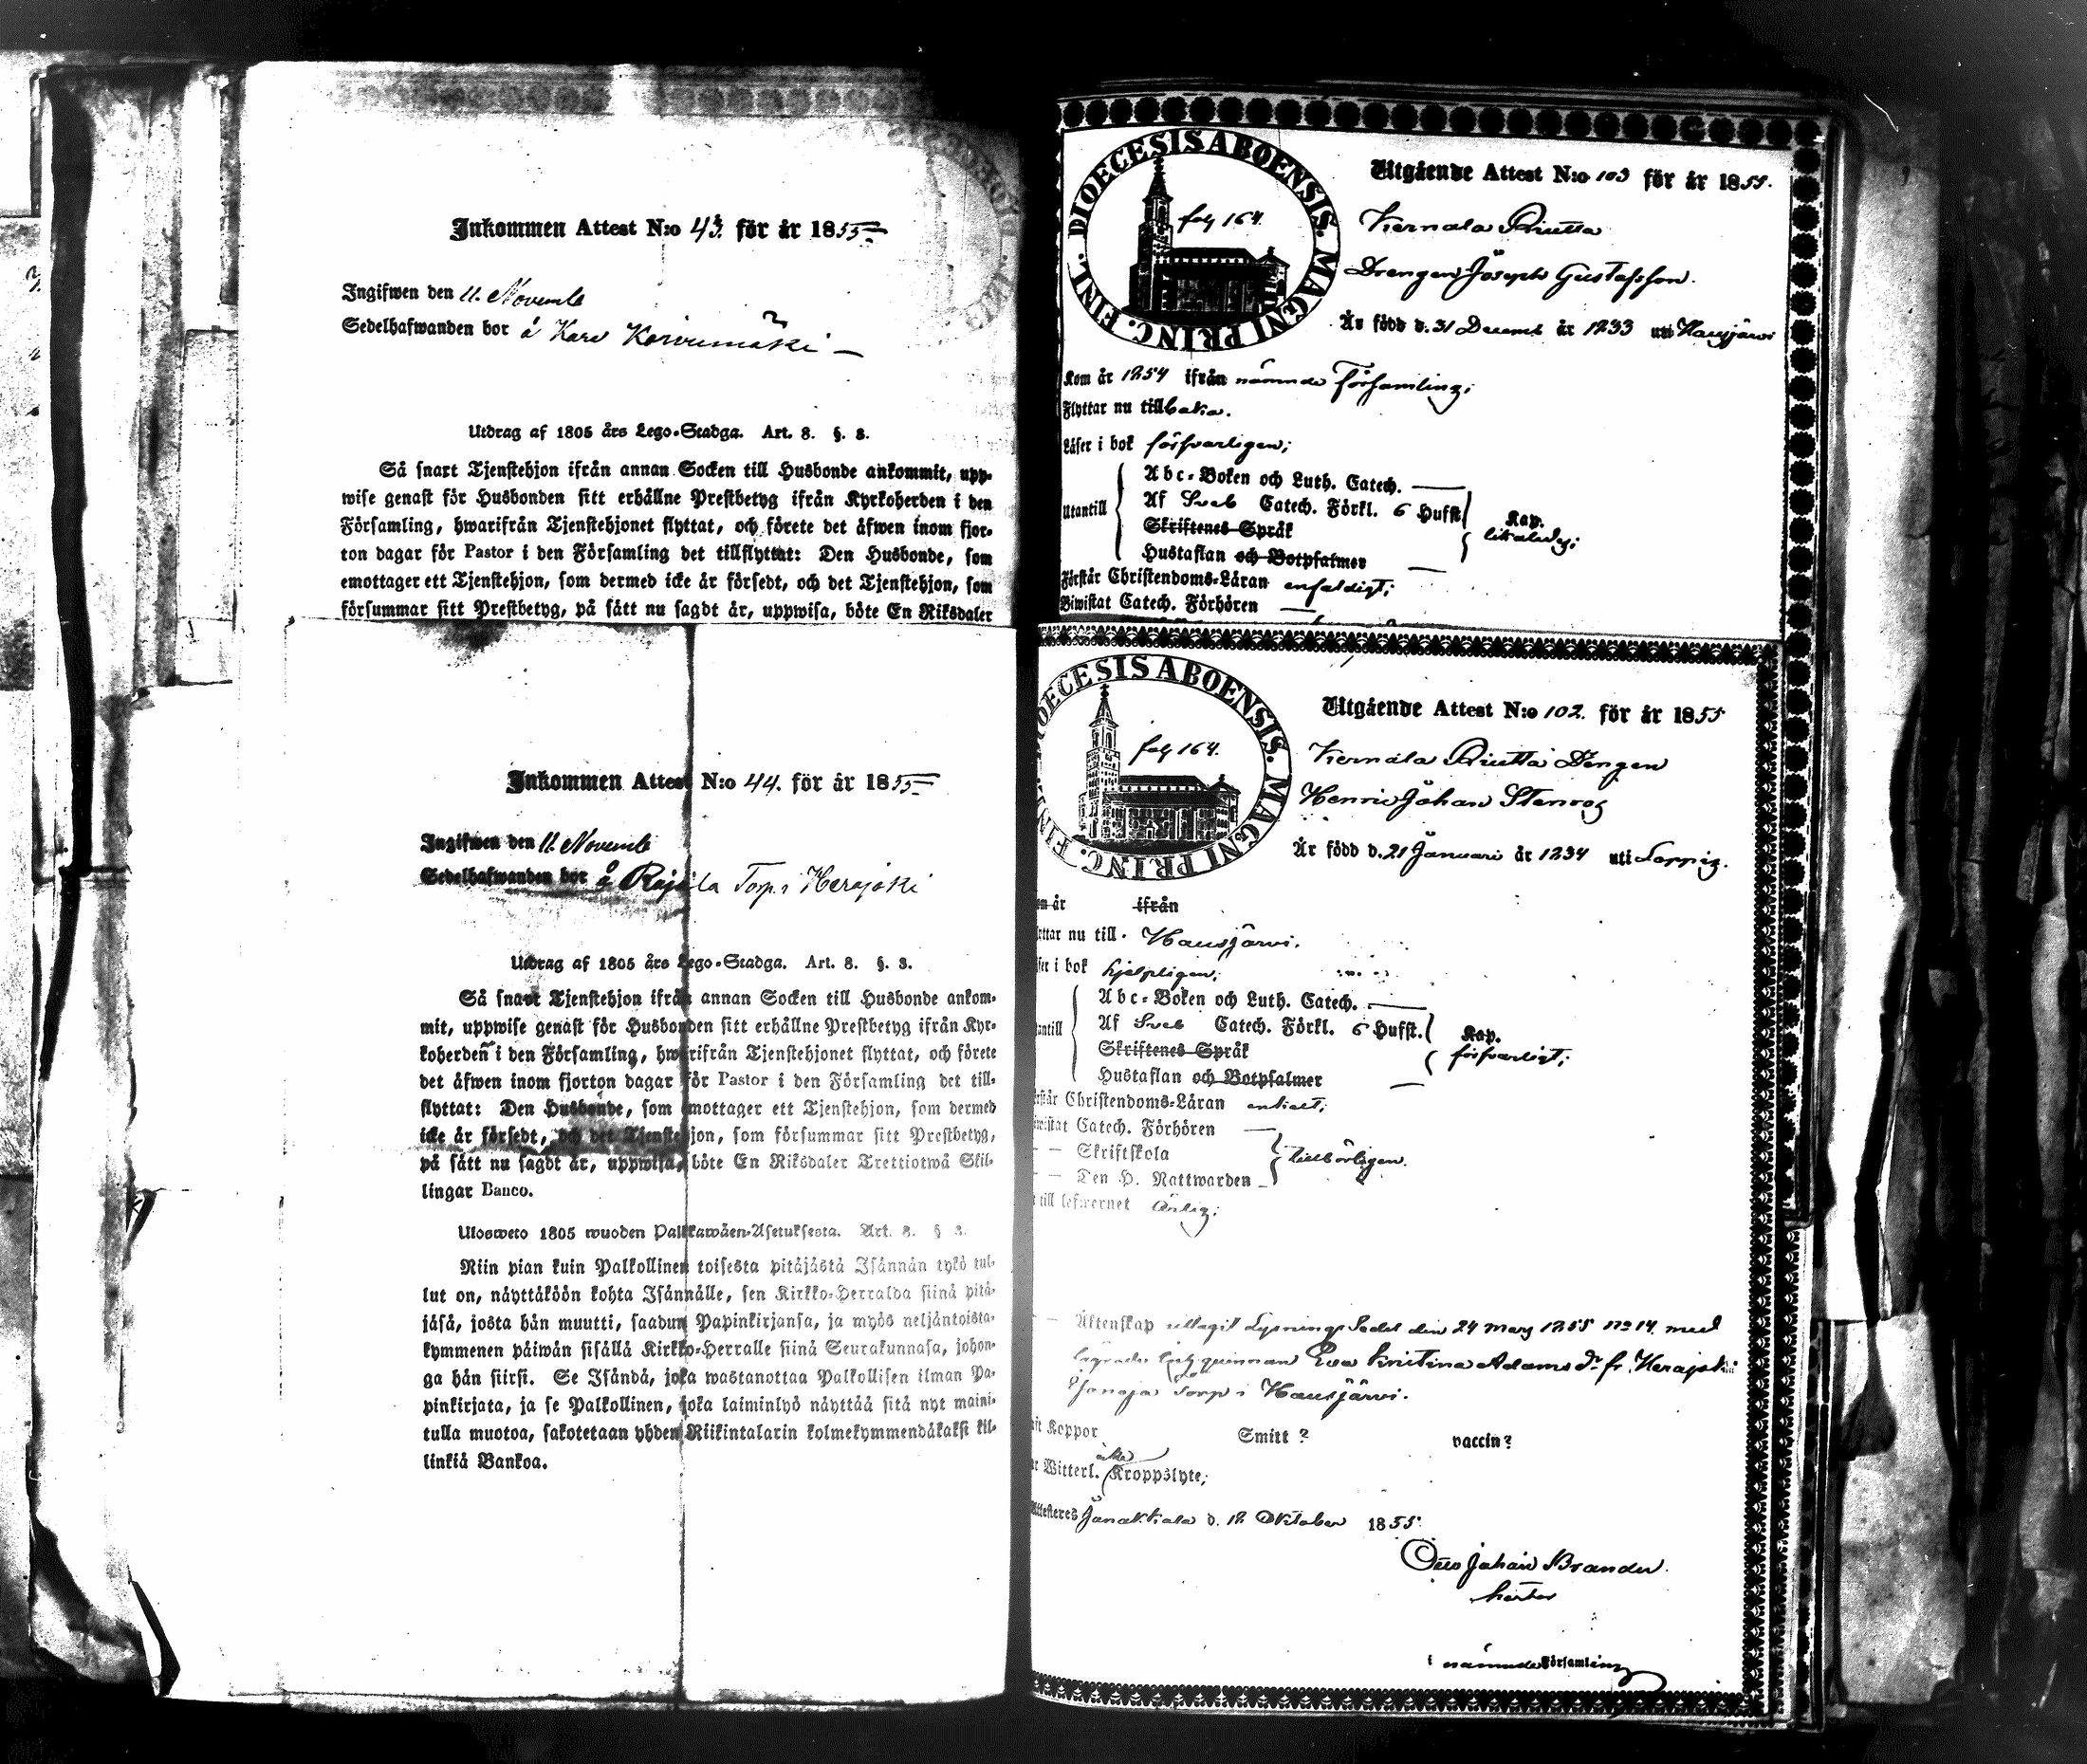 Inkommen Attest N:o 43. för år 1855.
Ingifwen den 11. Novemb
Sedelhafwanden bor å Kara Korvenmäki
Utdrag af 1805 års Lego-Stadga. Art. 8. §. 3.
Så snart Tjenstehjon ifrån annan Socken till Husbonde ankommit, upp-
wise genast för Husbonden sitt erhållne Prestbetyg ifrån Kyrkoherden i den
Församling, hwarifrån Tjenstehjonet flyttat, och förete det äfwen inom fjor-
ton dagar för Pastor i den Församling det tillflyttat: Den Husbonde, som
emottager ett Tjenstehjon, som dermed icke är försedt, och det Tjenstehjon, som
försummar sitt Prestbetyg, på sätt nu sagdt är, uppwisa, böte En Riksdaler
Inkommen Attest N:o 44. för år 1855.
Ingifwen den 11. Novemb
Sedelhafwanden bor å Rajala Torp i Herajoki
Utdrag af 1805 års Lego-Stadga. Art. 8. §. 3.
Så snart Tjenstehjon ifrån annan Socken till Husbonde ankom-
mit, uppwise genast för Husbonden sitt erhållne Prestbetyg ifrån Kyr-
koherden i den Församling, hwarifrån Tjenstehjonet flyttat, och förete
det äfwen inom fjorton dagar för Pastor i den Församling det till-
flyttat: Den Husbonde, som emottager ett Tjenstehjon, som dermed
icke är försedt, och det Tjenstehjon, som försummar sitt Prestbetyg,
på sätt nu sagdt är, uppwisa, böte En Riksdaler Trettiotwå Skil-
lingar Banco.
Ulosweto 1805 wuoden Palkkawäen-Asetuksesta. Art. 8. § 3.
Niin pian kuin Palkollinen toisesta pitäjästä Isännän tykö tul-
lut on, näyttäköön kohta Isännälle, sen Kirkko-Herralda siinä pitä-
jäsä, josta hän muutti, saadun Papinkirjansa, ja myös neljäntoista-
kymmenen päiwän sisällä Kirkko-Herralle siinä Seurakunnasa, johon-
ga hän siirsi. Se Isändä, joka wastanottaa Palkollisen ilman Pa-
pinkirjata, ja se Palkollinen, joka laiminlyö näyttää sitä nyt maini-
tulla muotoa, sakotetaan yhden Riikintalarin kolmekymmendäkaksi kil-
linkiä Bankoa.
DIOECESIS ABOENSIS. MAGNI PRINC. FINL.
fol 164.
Utgående Attest N:o 103 för år 1855.
Kernala Riutta
Drengen Joseph Gustafsson.
Är född d. 31 Decemb år 1833 uti Hausjärvi
Kom år 1854 ifrån nämnde Församling;
Flyttar nu tillbaka.
Läser i bok försvarligen;
Utantill
Abc-Boken och Luth. Catech.
Af Sveb Catech. Förkl. 6 Hufst
Skriftenes Språk
Hustaflan och Botpsalmer
Kap.
likaledes;
Förstår Christendoms-Läran enfaldigt;
Biwistat Catech. Förhören
OECESIS ABOENSIS. MAGNI PRINC. FIN
fol 164.
Utgående Attest N:o 102. för år 1855
Kernala Riutta Drengen
Henric Johan Stenroos
Är född d. 21 Januari år 1834 uti Loppis.
m år ifrån
ttar nu till Hausjärvi.
ser i bok hjelpligen;
antill
Abc-Boken och Luth. Catech.
Af Sveb Catech. Förkl. 6 Hufst.
Skriftenes Språk
Hustaflan och Botpsalmer
Kap.
försvarligt;
rstår Christendoms-Läran enkelt;
wistat Catech. Förhören
— — Skriftskola
— — Den H. Nattwarden
tillbörligen.
till lefwernet Ärlig;
— Äktenskap uttagit Lysnings Sedel den 24 Mars 1855 No 14. med
Eva Kristina Adams dr fr. Herajoki
torp i Hausjärvi.
it Koppor Smitt? vaccin?
Witterl. icke Kroppslyte;
Attesteres Janakkala d. 18. Oktober 1855.
Otto Johan Brander.
i nämnde Församling